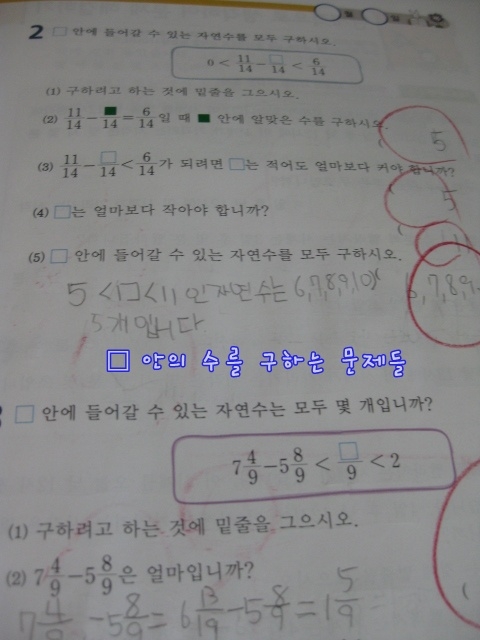 월 일
2 □ 안에 들어갈 수 있는 자연수를 모두 구하시오.
0 < 11/14 - □/14 < 6/14
(1) 구하려고 하는 것에 밑줄을 그으시오.
(2) 11/14 - ■/14 = 6/14 일 때 ■ 안에 알맞은 수를 구하시오.
5
(3) 11/14 - □/14 < 6/14 가 되려면 □는 적어도 얼마보다 커야 합니까?
5
(4) □는 얼마보다 작아야 합니까?
11
(5) □ 안에 들어갈 수 있는 자연수를 모두 구하시오.
5 < □ < 11 인 자연수는 6,7,8,9,10
6,7,8,9
5개입니다
□ 안의 수를 구하는 문제들
□ 안에 들어갈 수 있는 자연수는 모두 몇 개입니까?
7 4/9 - 5 8/9 < □/9 < 2
(1) 구하려고 하는 것에 밑줄을 그으시오.
(2) 7 4/9 - 5 8/9 은 얼마입니까?
7 4/9 - 5 8/9 = 6 13/19 - 5 8/9 = 1 5/9